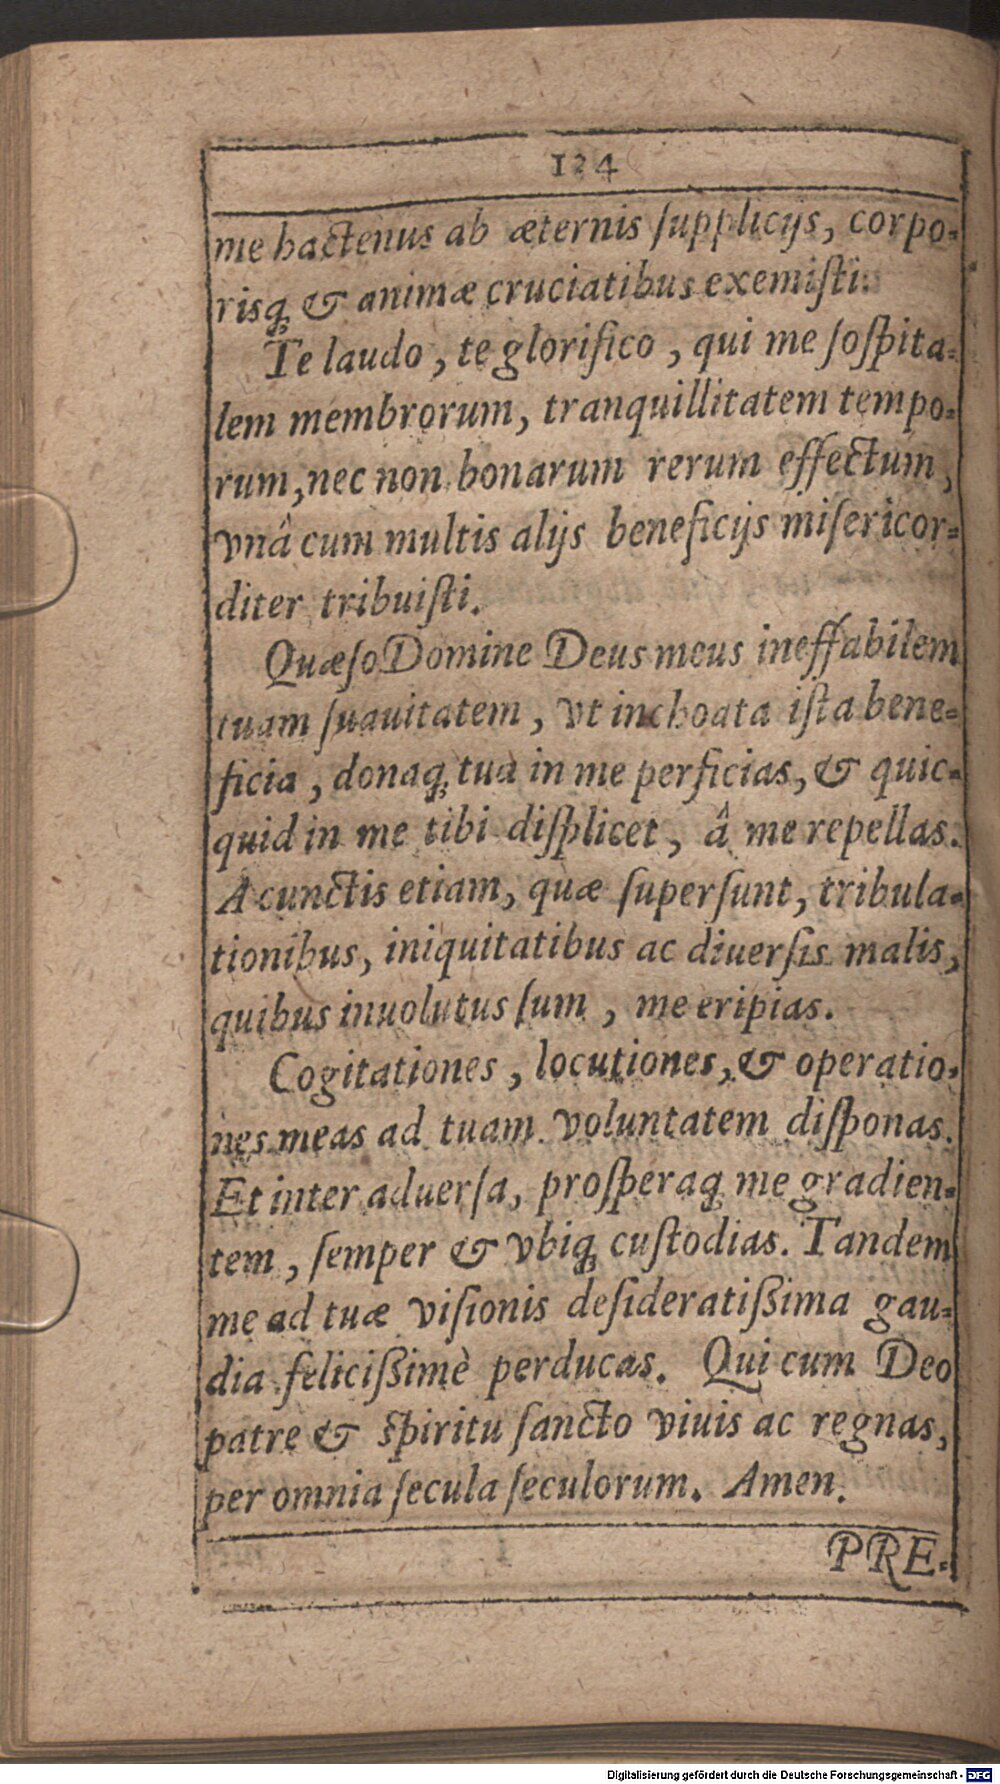 124
me hactenus ab æternis ſupplicijs, corpo-
risq́; & animæ cruciatibus exemiſti.
Te laudo, te glorifico, qui me ſoſpita-
lem membrorum, tranquillitatem tempo-
rum, nec non bonarum rerum effectum,
vnâ cum multis alijs beneficijs miſericor-
diter tribuiſti.
Quæſo Domine Deus meus ineffabilem
tuam ſuauitatem, vt inchoata iſta bene-
ficia, donaq́; tua in me perficias, & quic-
quid in me tibi diſplicet, â me repellas.
A cunctis etiam, quæ superſunt, tribula-
tionibus, iniquitatibus ac diuerſis malis,
quibus inuolutus ſum, me eripias.
Cogitationes, locutiones, & operatio-
nes meas ad tuam voluntatem diſponas.
Et inter aduerſa, proſperaq́; me gradien-
tem, ſemper & vbiq́; cuſtodias. Tandem
me ad tuæ viſionis deſideratißima gau-
dia felicißimè perducas. Qui cum Deo
patre & ſpiritu ſancto viuis ac regnas,
per omnia ſecula ſeculorum. Amen.
PRE-
Digitalisierung gefördert durch die Deutsche Forschungsgemeinschaft - DFG